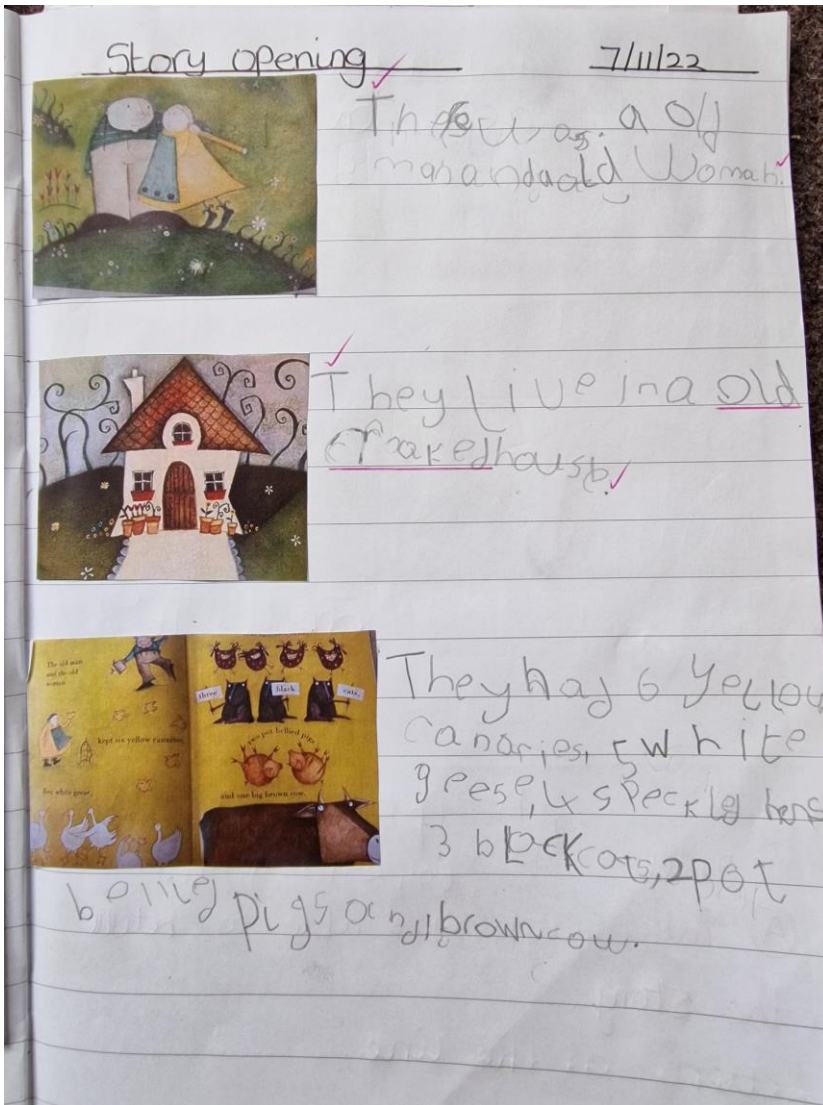 Story opening 7/11/22
Ther was. a old
man and a old Woman.
They live in a old
craked house.
The old man
and the old
woman
kept six yellow canaries,
five white geese,
three black cats,
two pot bellied pigs
and one big brown cow.
They had 6 yellow
canaries, 5 white
geese, 4 speckly hens
3 black cots, 2 pot
bellied
pigs and 1 brown cow.